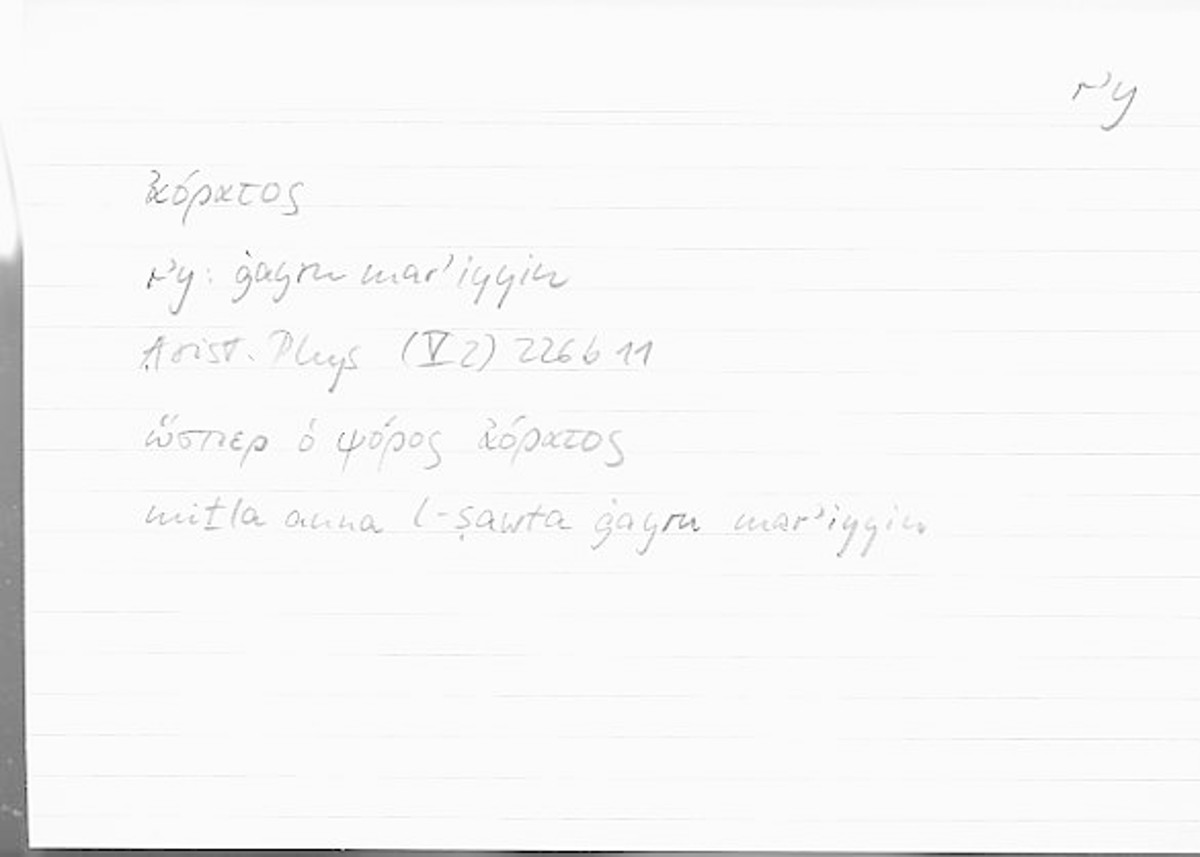 rʾy
ἀόρατος
rʾy: ġayru marʾiyyin
Arist. Phys (V 2) 226 b 11
ὥσπερ ὁ ψόφος ἀόρατος
miṯla anna l-ṣawta ġayru marʾiyyin